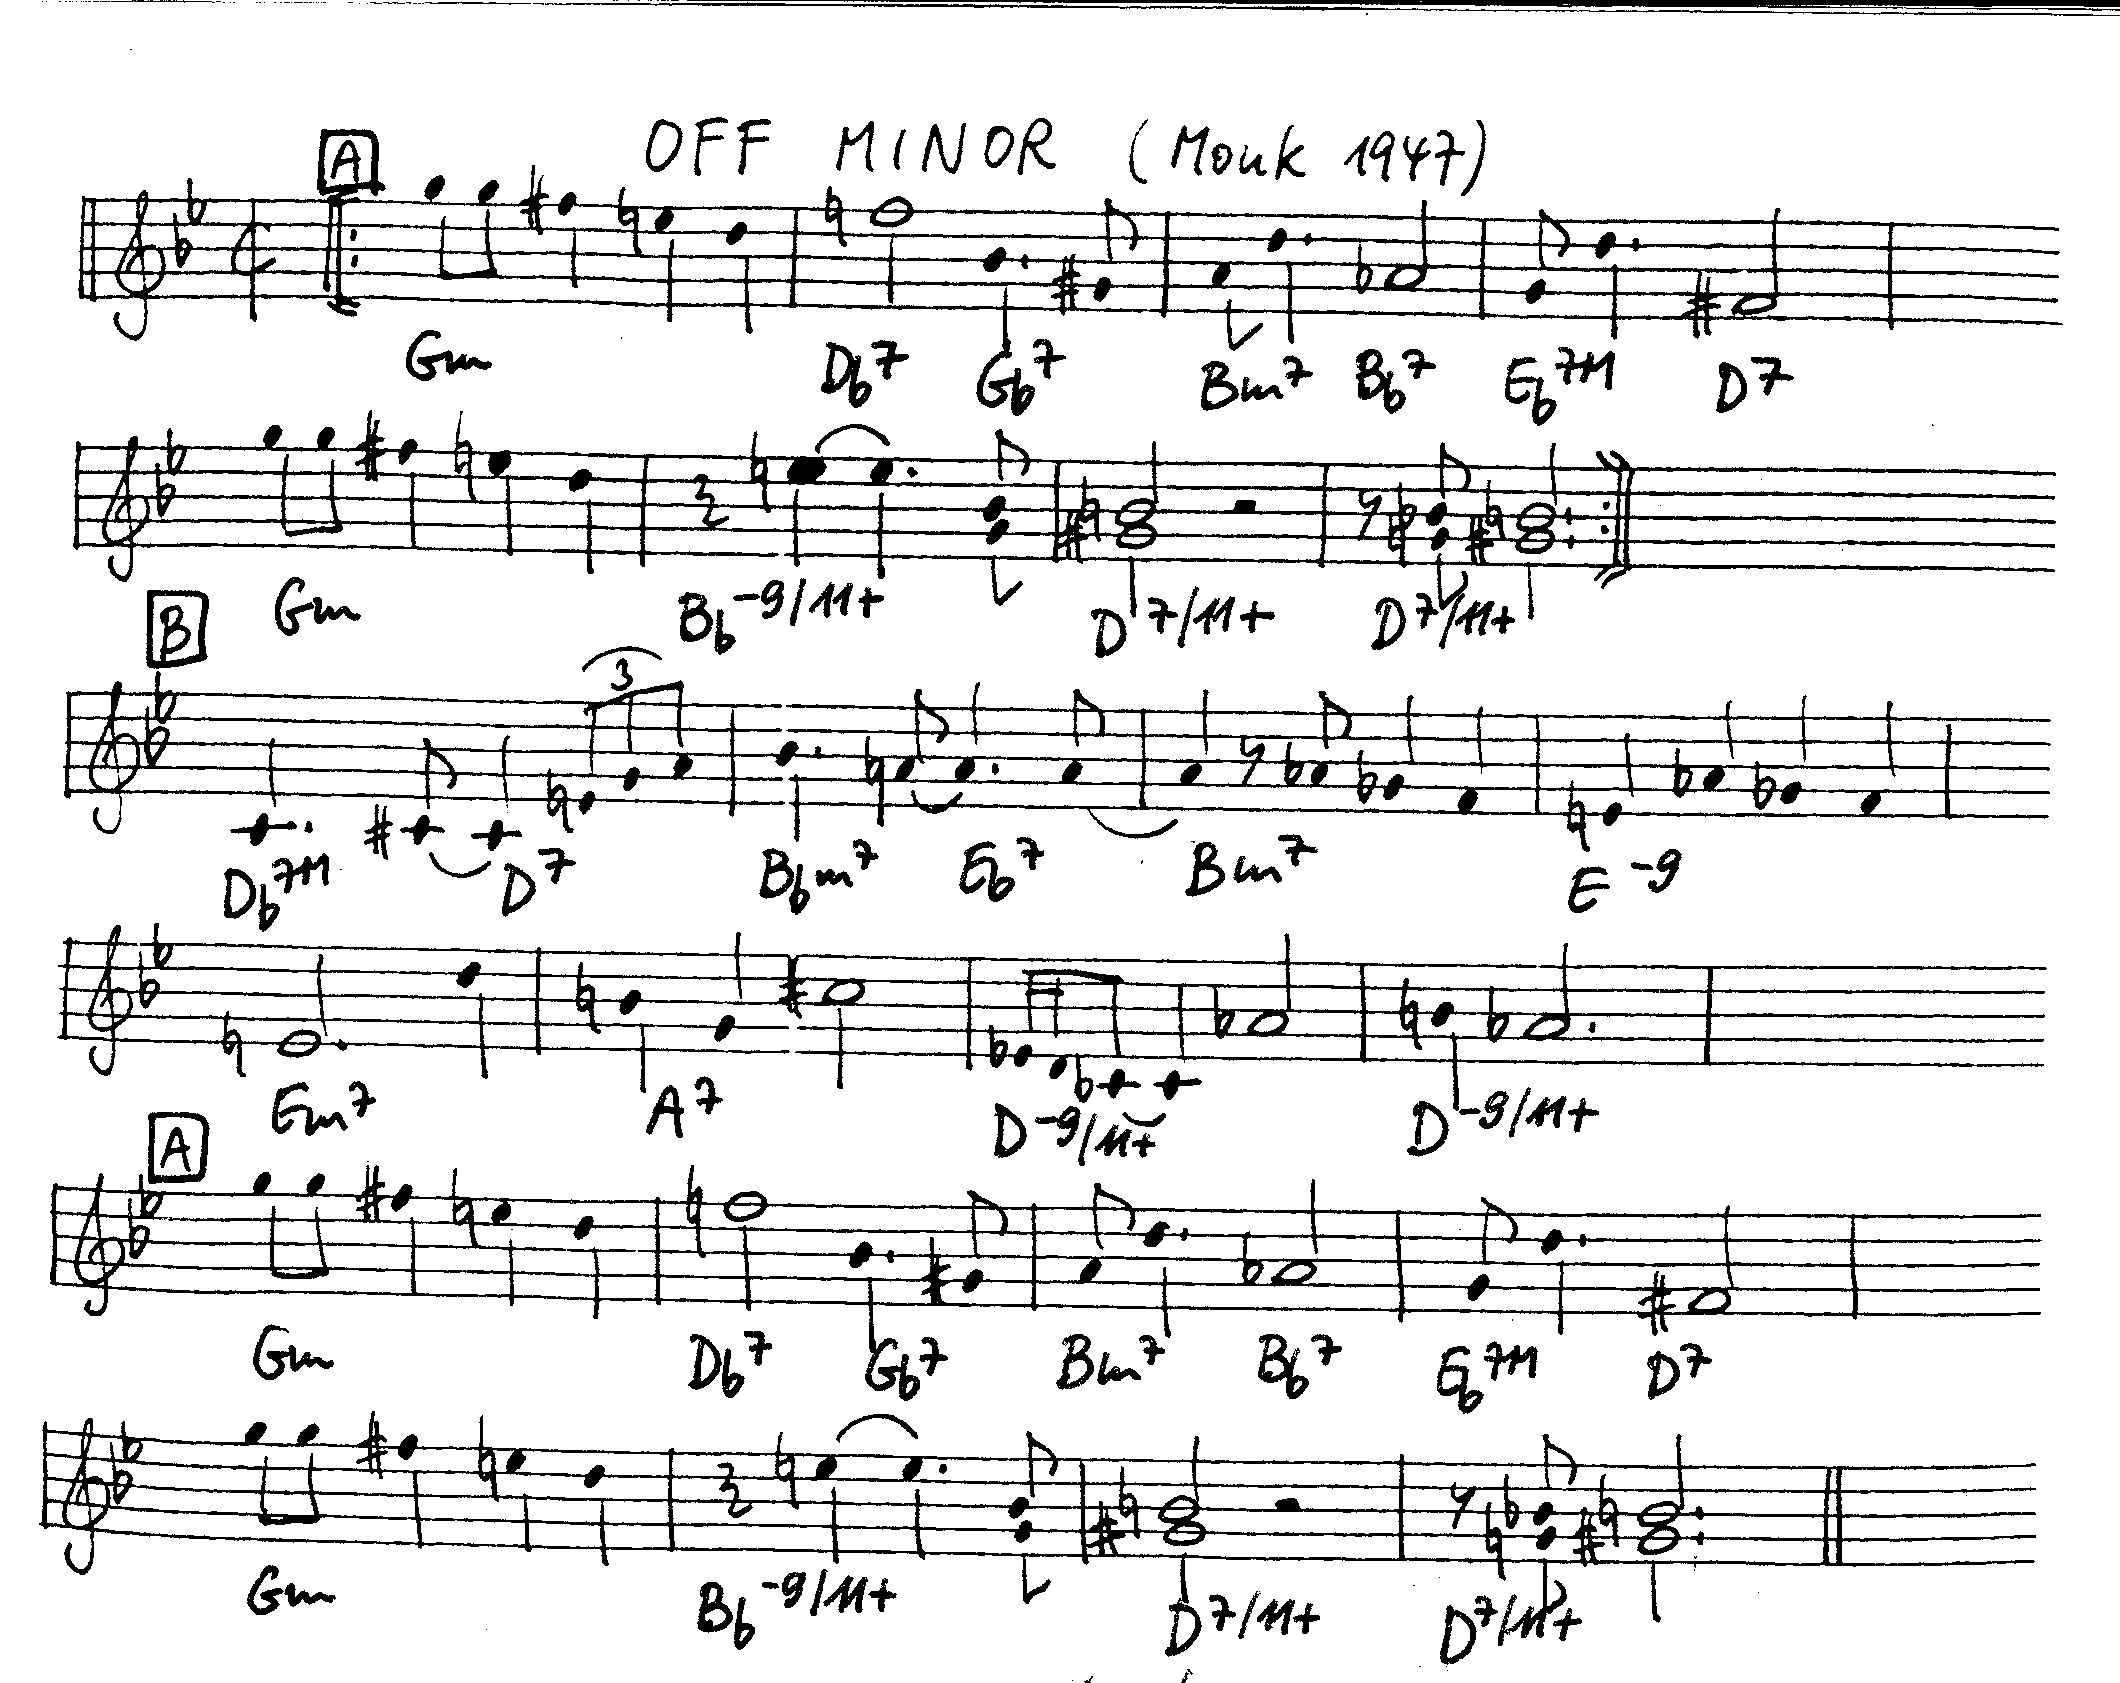 OFF MINOR (Monk 1947)
A
Gm Db7 Gb7 Bm7 Bb7 Eb7M D7
Gm Bb-9/11+ D7/11+ D7/11+
B
3
Db7M D7 Bbm7 Eb7 Bm7 E-9
Em7 A7 D-9/11+ D-9/11+
A
Gm Db7 Gb7 Bm7 Bb7 Eb7M D7
Gm Bb-9/11+ D7/11+ D7/11+